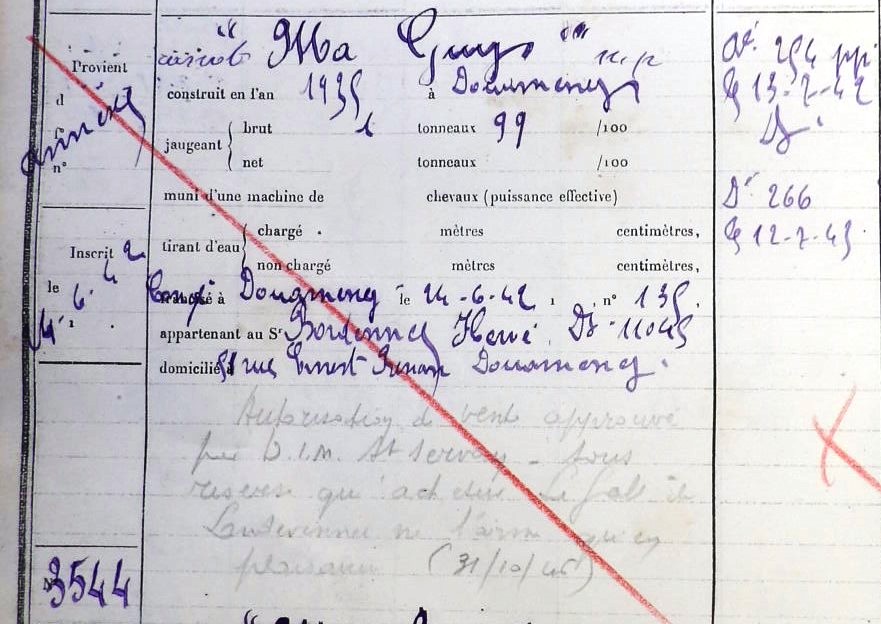 " Ma Guigo " n.p
Provient
d
f°
n°
annexe
construit en l'an 1935 à Douarnenez
jaugeant { brut 1 tonneaux 99 /100
net tonneaux /100
muni d'une machine de chevaux (puissance effective)
tirant d'eau { chargé . mètres centimètres,
non chargé mètres centimètres,
Inscrit
le 24.6.42
Congé à Douarnenez le 24-6-42, n° 135.
appartenant au Sr Bordennec Hervé. Dz 11045
domicilié à 51 rue Ernest Renan Douarnenez.
Autorisation de vente approuvée
par D.I.M. St Servan - sous
réserve qu'acheteur Le Gall de
Landévennec ne l'arme qu'en
plaisance (31/10/45)
N° 3544
Dt 254 ppi
le 13-7-42
Dz
Dt 266
le 12-7-45